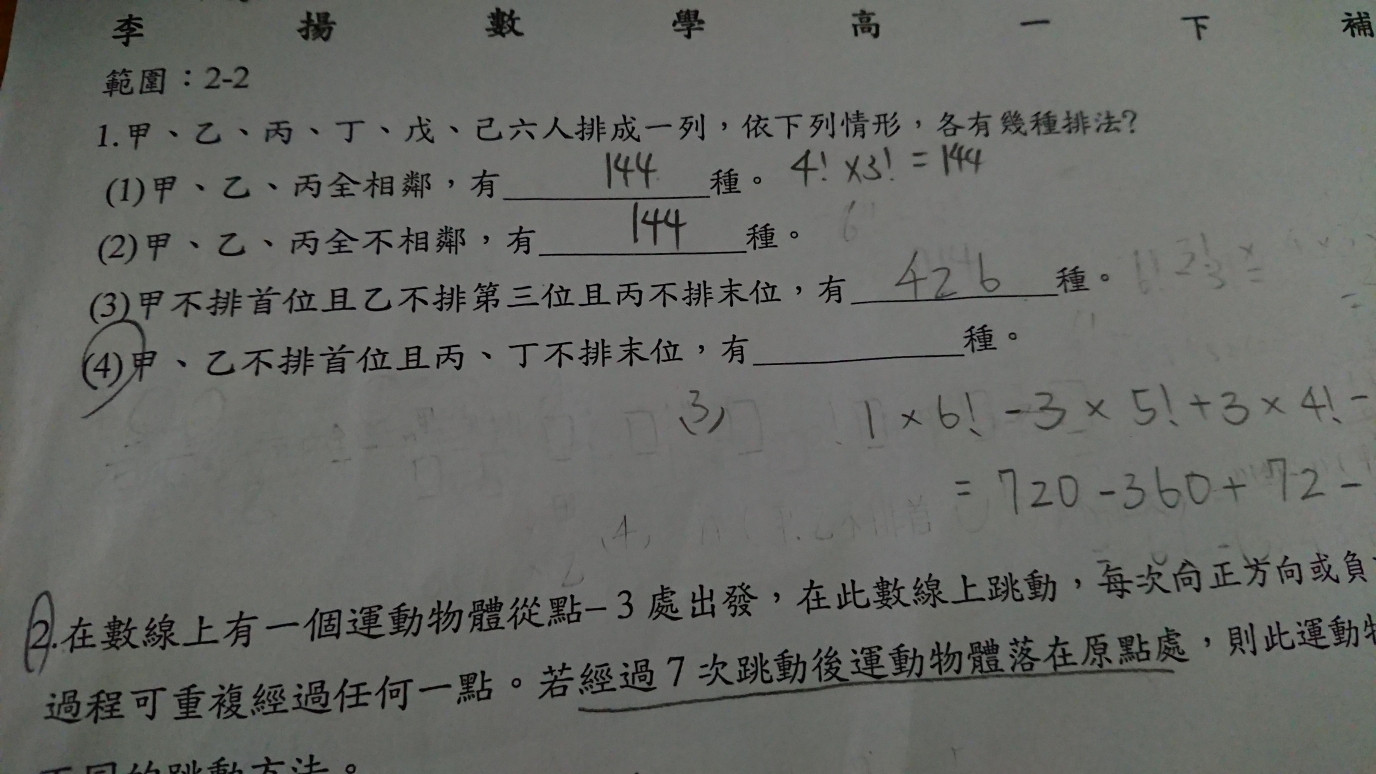 李 揚 數 學 高 一 下 補
範圍：2-2
1.甲、乙、丙、丁、戊、己六人排成一列，依下列情形，各有幾種排法?
(1)甲、乙、丙全相鄰，有 144 種。 4! ×3! = 144
(2)甲、乙、丙全不相鄰，有 144 種。
(3)甲不排首位且乙不排第三位且丙不排末位，有 426 種。
(4)甲、乙不排首位且丙、丁不排末位，有 種。
(3) 1 × 6! - 3 × 5! + 3 × 4! -
= 720 - 360 + 72 -
(4)
2.在數線上有一個運動物體從點–3 處出發，在此數線上跳動，每次向正方向或負
過程可重複經過任何一點。若經過 7 次跳動後運動物體落在原點處，則此運動物
不同的跳動方法。